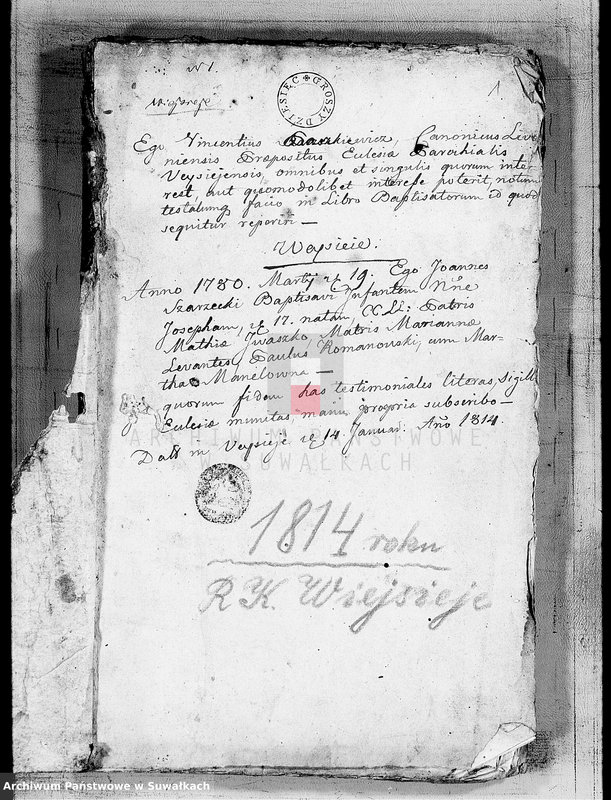 N 1.
1
DZIESIĘC GROSZY
Wieysieje
Ego Vincentius Canonicus Live-
niensis Præpositus Eclesiæ Parochialis
Veysiejensis, omnibus et singulis quorum inte-
rest, aut quomodolibet interesse poterit, notum
testatumq facio in Libro Baptisatorum id quod
sequitur reperiri —
Weysieie.
Anno 1780. Martij 19. Ego Joannes
Szarzecki Baptisavi Infantem Nñe
Josepham, 17. natam, LL: Patris
Mathia Jwaszko, Matris Mariannæ
Levantes Paulus Romanowski, cum Mar-
tha Manelowna —
quorum fidem has testimoniales literas, Sigill
Eclesiæ munitas manu propria subscribo —
Datt in Veysieje 14 Januar: Año 1814.
ARCHIWUM PAŃSTWOWE
W SUWAŁKACH
1814 roku
R K. Wiejsieje
Archiwum Państwowe w Suwałkach